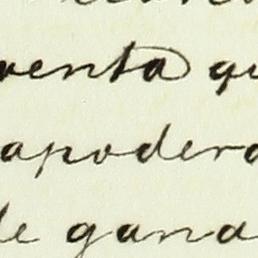 venta qu
apodera
de gana